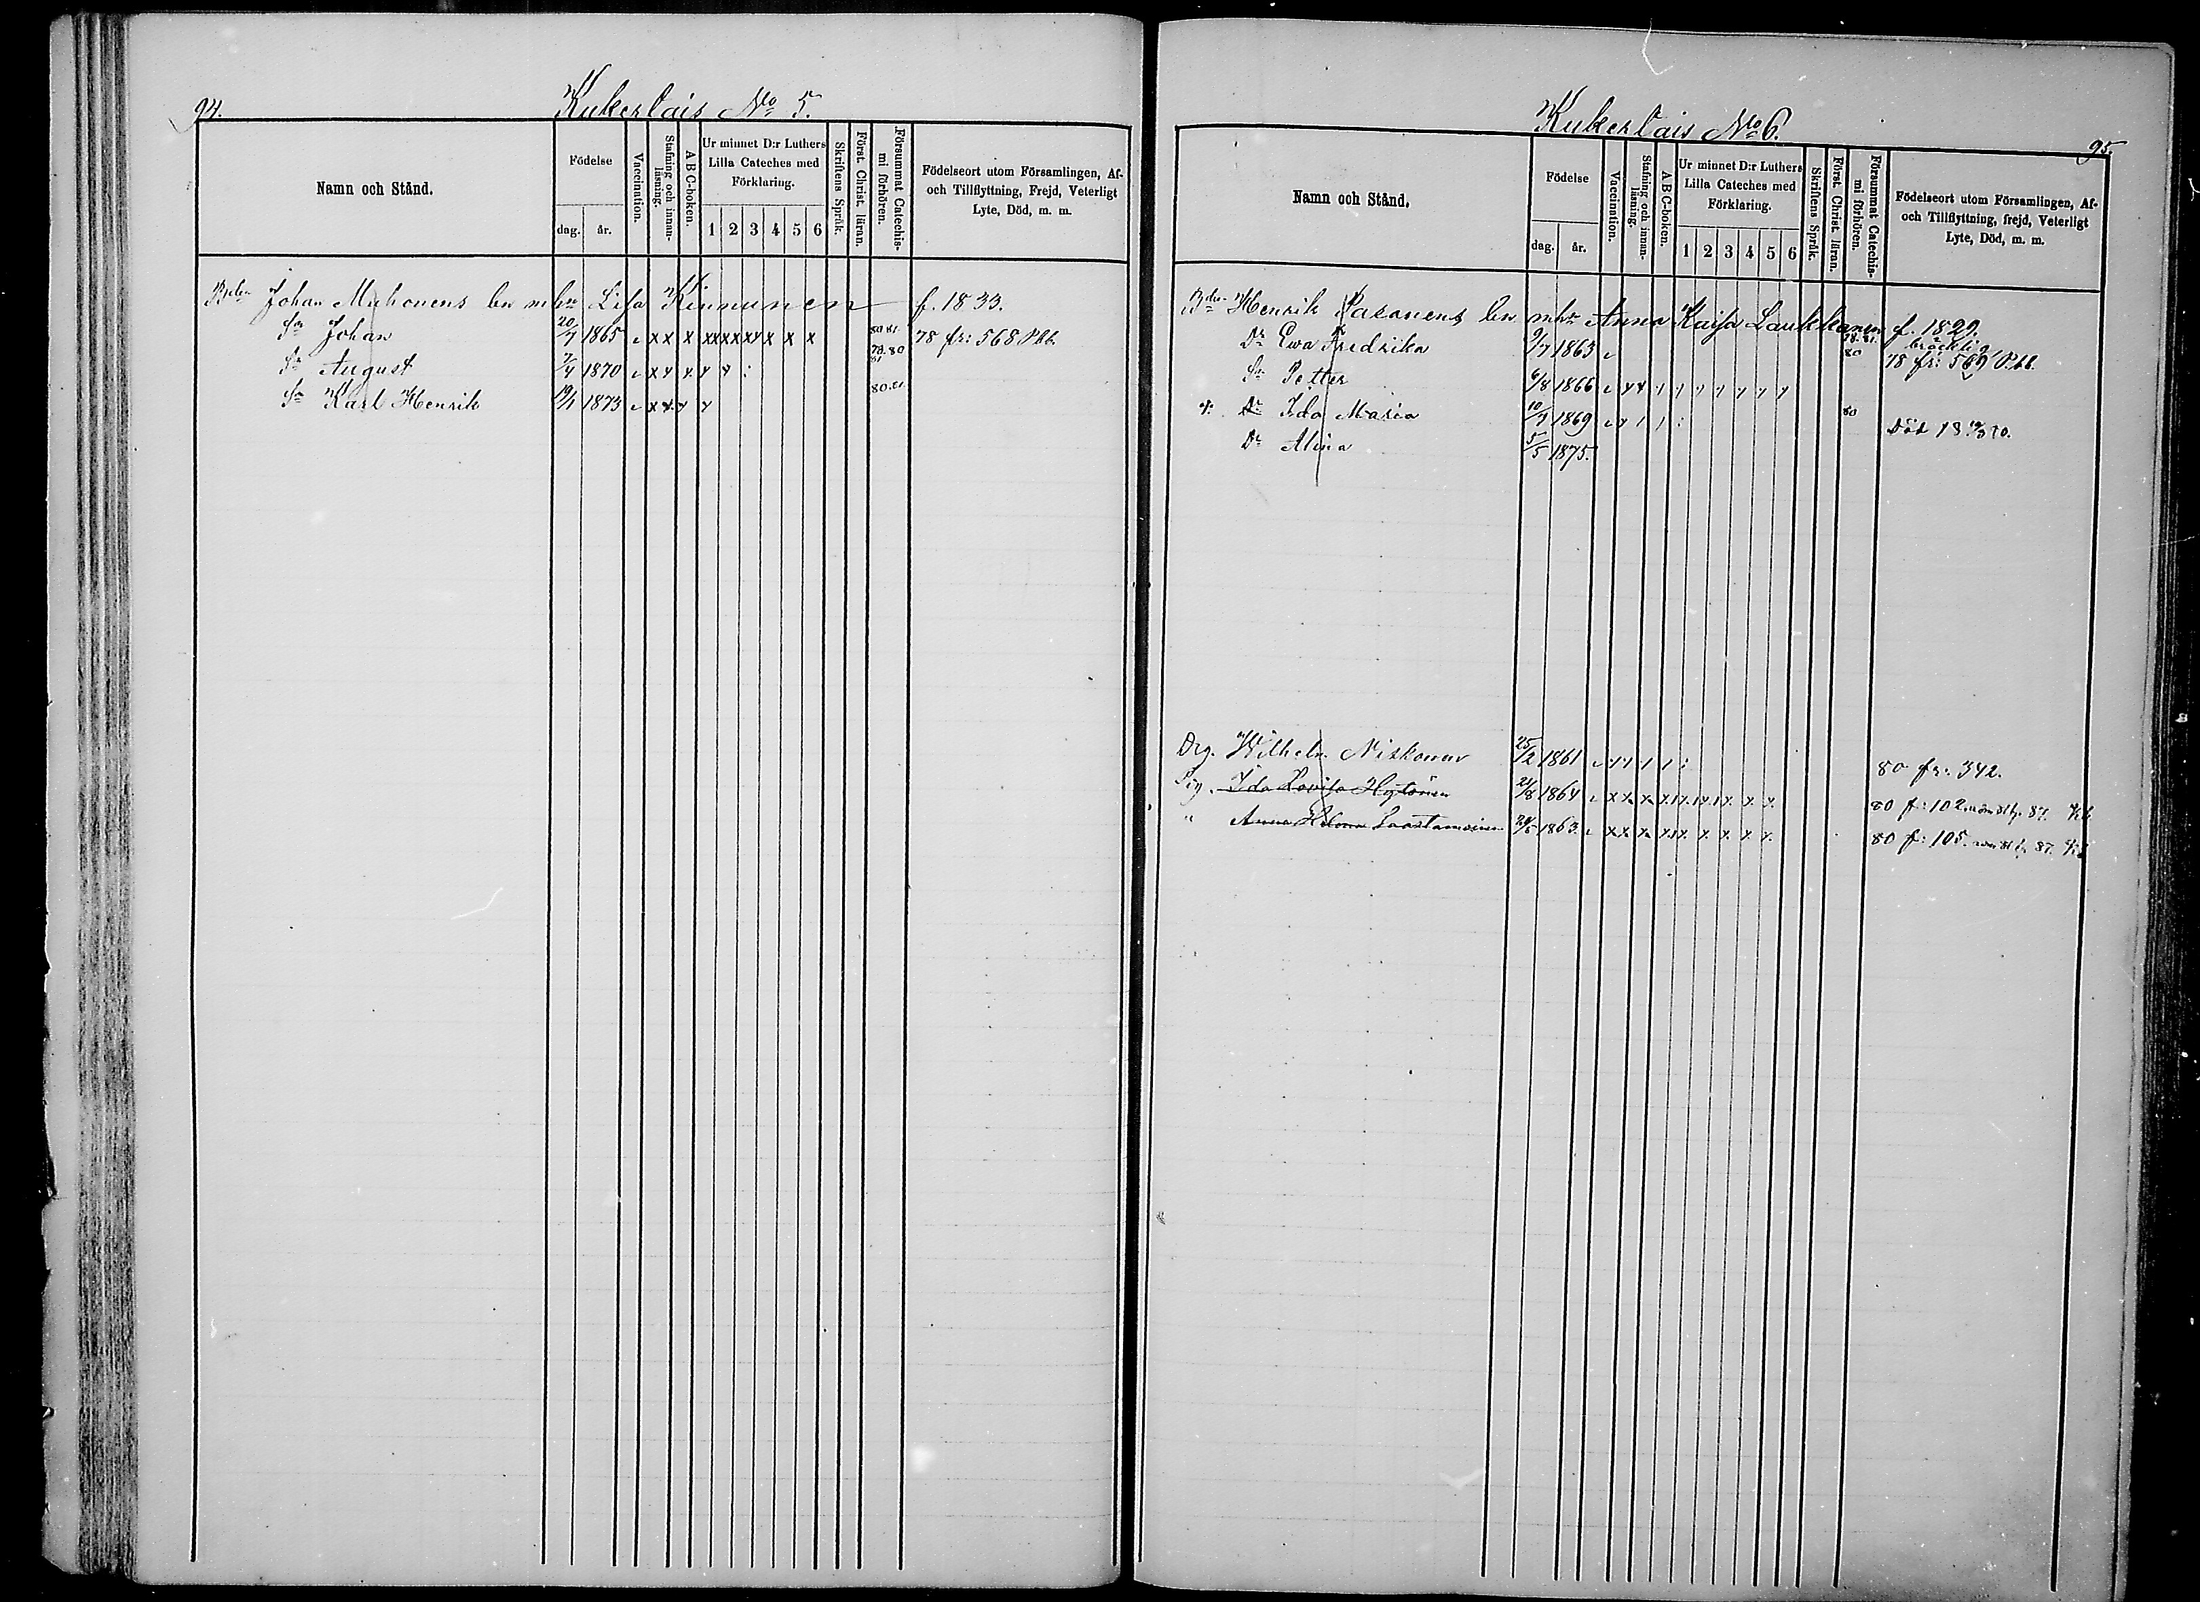 94.
Kukerlais No 5.
Namn och Stånd.
Födelse
dag. år.
Vaccination.
Stafning och innanläsning.
A B C-boken.
Ur minnet D:r Luthers Lilla Cateches med Förklaring.
1 2 3 4 5 6
Skriftens Språk.
Först. Christ. läran.
Försummat Catechismi förhören.
Födelseort utom Församlingen, Af- och Tillflyttning, Frejd, Veterligt Lyte, Död, m. m.
Johan Muhonens Lisa Kinnunen f. 1833.
Sn Johan 20/7 1865 x x x x x x x x x x x 80 81 78 fr: 568 Pbb.
Sn August 7/4 1870 78. 80 81
Sn Karl Henrik 19/1 1873 80.81
Kukerlais No 6.
95.
Namn och Stånd.
Födelse
dag. år.
Vaccination.
Stafning och innanläsning.
A B C-boken.
Ur minnet D:r Luthers Lilla Cateches med Förklaring.
1 2 3 4 5 6
Skriftens Språk.
Först. Christ. läran.
Försummat Catechismi förhören.
Födelseort utom Församlingen, Af- och Tillflyttning, frejd, Veterligt Lyte, Död, m. m.
Henrik Pasanens Anna Kaisa Laukkanen f. 1829. bräcklig
Dr Ewa Fredrika 9/7 1863 78. 81. 80 78 fr: 569 Pbb.
Sn Petter 6/8 1866
Dr Ida Maria 10/4 1869 80 Död
Dr Alina 5/5 1875.
Drg. Wilhelm Niskanen 25/2 1861 80 fr: 342.
Pig. Ida Lovisa Hytönen 21/8 1864 80 f: 102
" Anna Helena Saastamoinen 1863 80 f: 105.